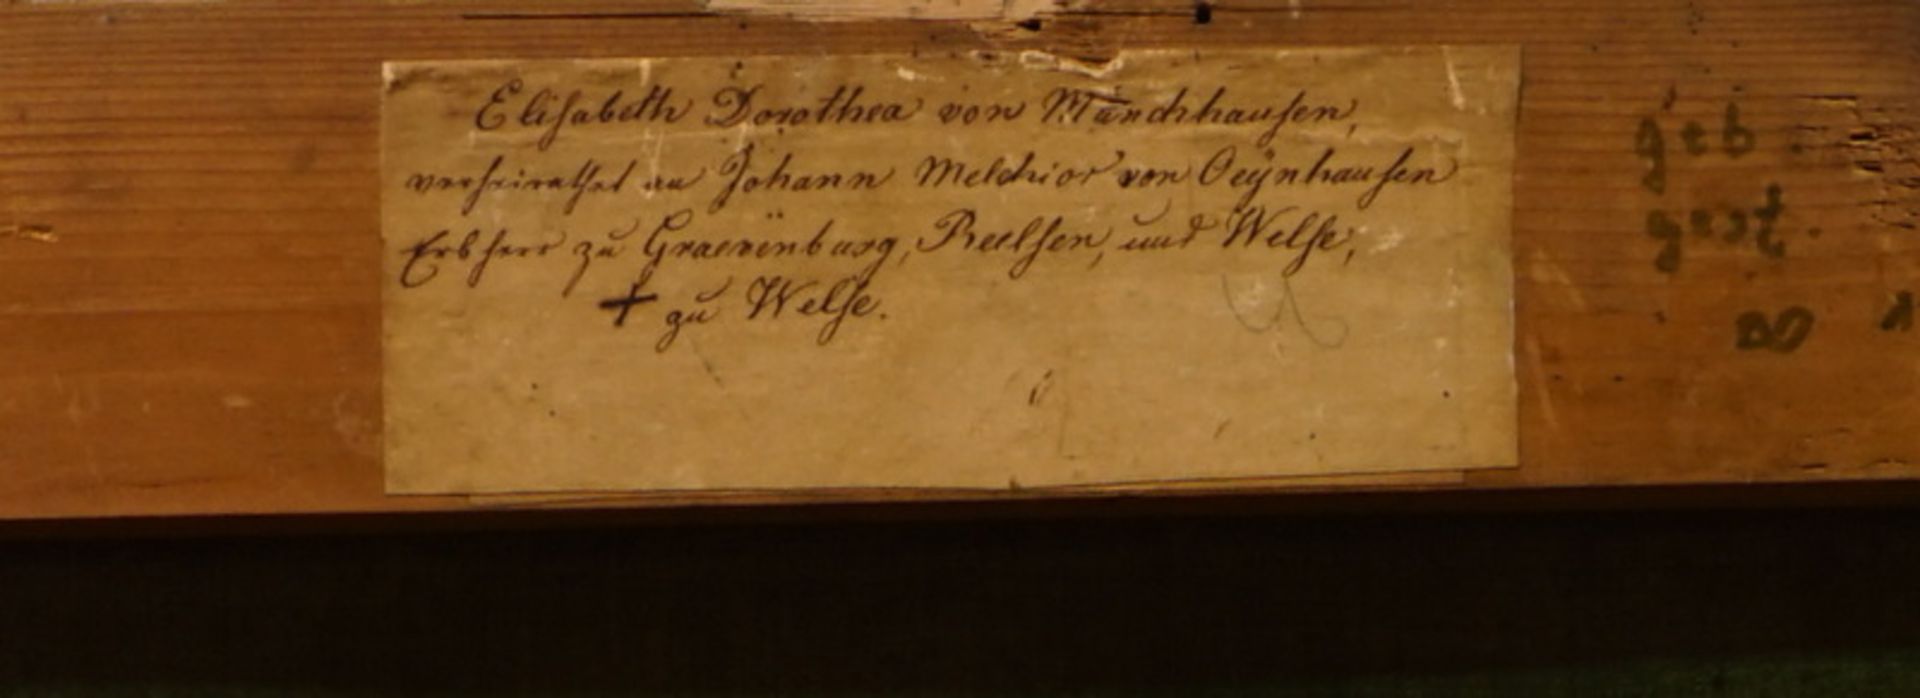 Elisabeth Dorothea von Münchhausen,
verheirathet an Johann Melchior von Oeÿnhausen
Erbherr zu Graevenburg, Reelsen, und Welse,
+ zu Welse.
geb.
gest.
∞